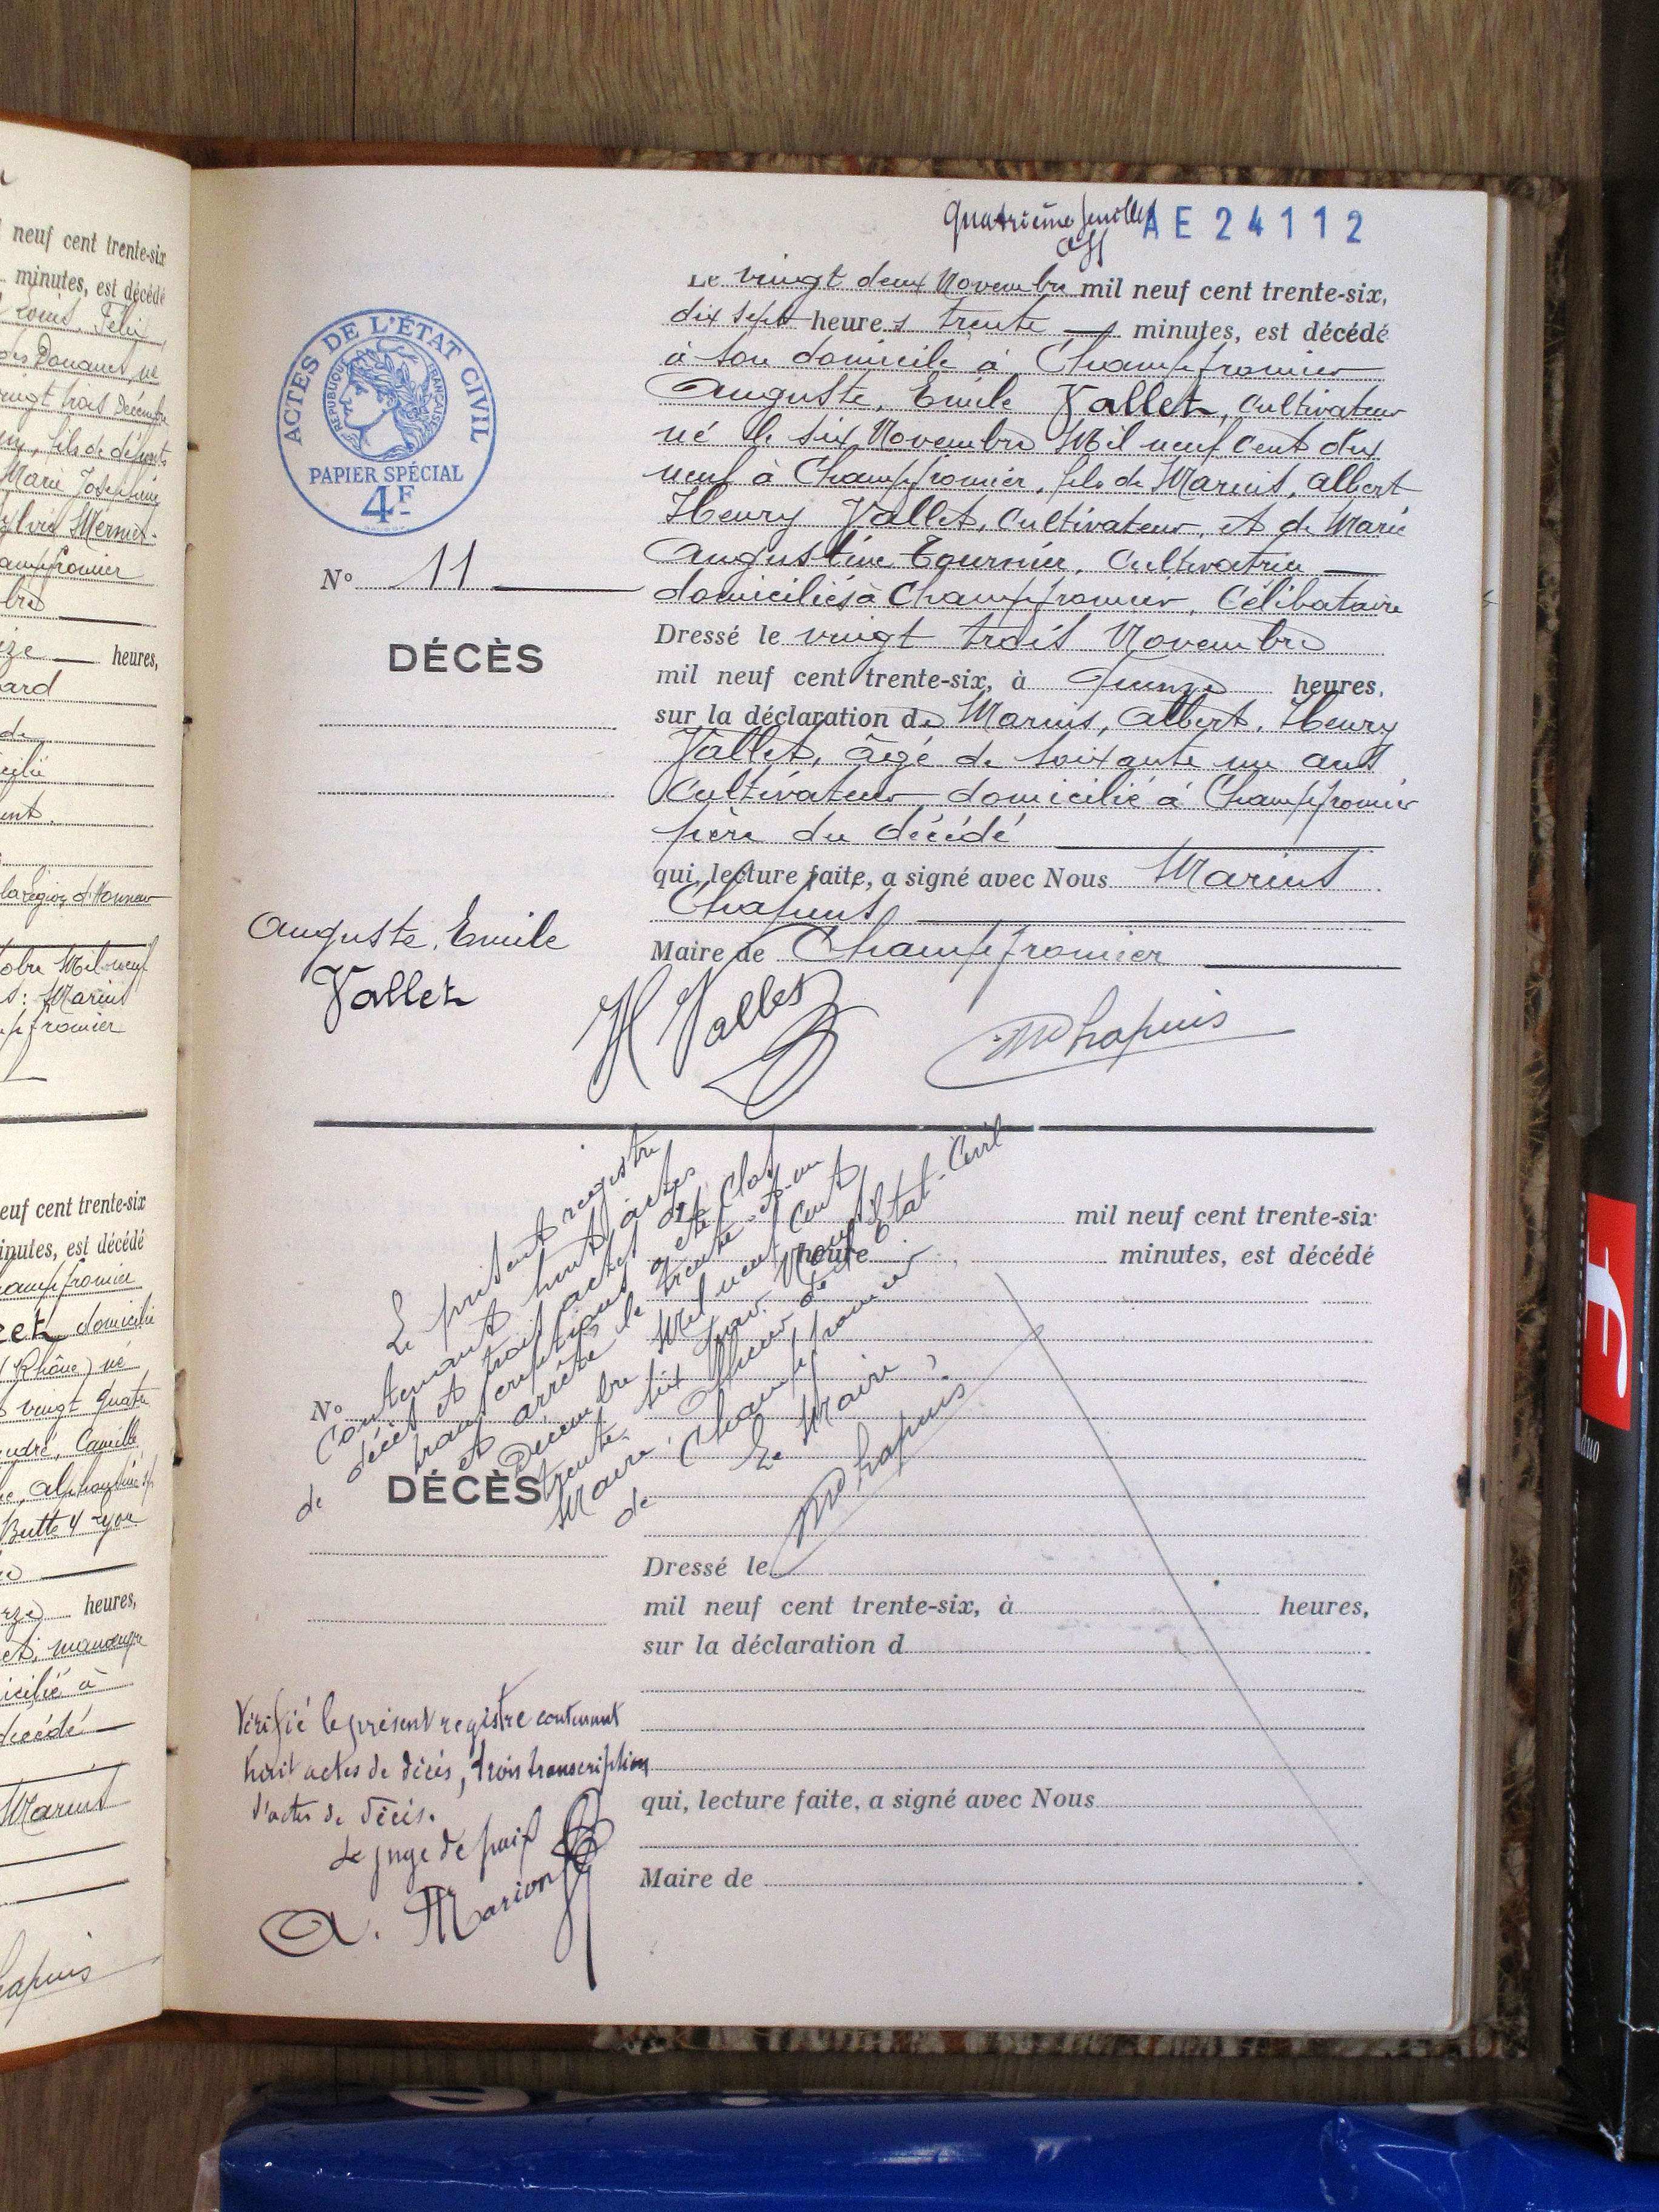 neuf cent trente-six
minutes, est décédé
Louis, Félix
des Douanes, né
vingt trois Décembre
fils de défunts
Marie Joséphine
Mermet
Champfromier
heures,
la légion d'Honneur
Mil neuf
Marius
neuf cent trente-six
minutes, est décédé
Champfromier
domicilié
(Rhône) né
vingt quatre
André, Camille
Butte 4 Lyon
heures,
domicilié à
décédé
Marius
Chapuis
Quatrième feuillet
AE 24112
Le vingt deux Novembre mil neuf cent trente-six,
dix sept heures trente minutes, est décédé
à son domicile à Champfromier
Auguste, Emile Vallet, Cultivateur
né le six Novembre Mil neuf cent dix
neuf à Champfromier, fils de Marius, Albert
Henry Vallet, Cultivateur, et de Marie
Augustine Tournier, Cultivatrice
domiciliés à Champfromier, Célibataire
Dressé le vingt trois Novembre
mil neuf cent trente-six, à Quinze heures,
sur la déclaration de Marius, Albert, Henry
Vallet, âgé de soixante un ans
Cultivateur domicilié à Champfromier
père du décédé
qui, lecture faite, a signé avec Nous Marius
Chapuis
Maire de Champfromier
H Vallet
M Chapuis
ACTES DE L'ÉTAT CIVIL
RÉPUBLIQUE FRANÇAISE
PAPIER SPÉCIAL
4F
N° 11
DÉCÈS
Auguste, Emile
Vallet
Le présent registre
Contenant huit actes
de décès et trois actes de
transcriptions a été clos
et arrêté le trente-et-un
Décembre Mil neuf cent
trente-six par Nous
Maire, Officier de l'Etat-Civil
de Champfromier
Le Maire,
M Chapuis
mil neuf cent trente-six
heure minutes, est décédé
N°
DÉCÈS
Dressé le
mil neuf cent trente-six, à heures,
sur la déclaration d
qui, lecture faite, a signé avec Nous
Maire de
Vérifié le présent registre contenant
huit actes de décès, trois transcription
d'actes de décès.
Le juge de paix
A. Marion